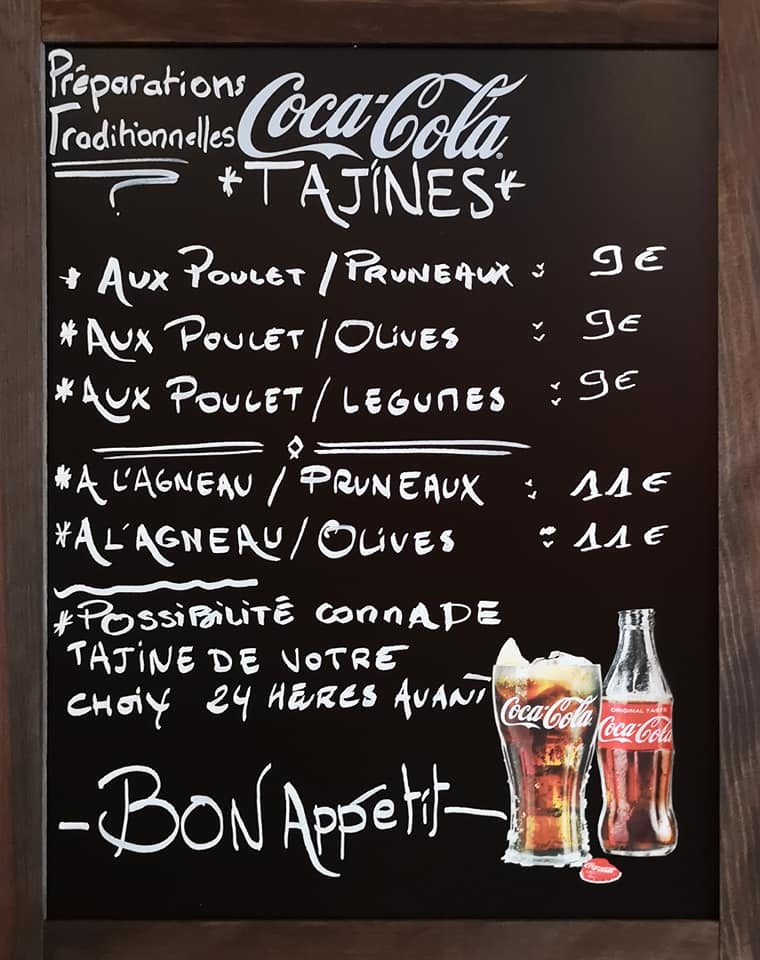 Préparations
Traditionnelles
Coca-Cola
*TAJINES*
* AUX POULET / PRUNEAUX : 9€
* AUX POULET / OLIVES : 9€
* AUX POULET / LEGUMES : 9€
* A L'AGNEAU / PRUNEAUX : 11€
* A L'AGNEAU / OLIVES : 11€
* POSSIBILITÉ COMMADE
TAJINE DE VOTRE
CHOIX 24 HERES AVANT
- BON Appétit -
Coca-Cola
ORIGINAL TASTE
Coca-Cola